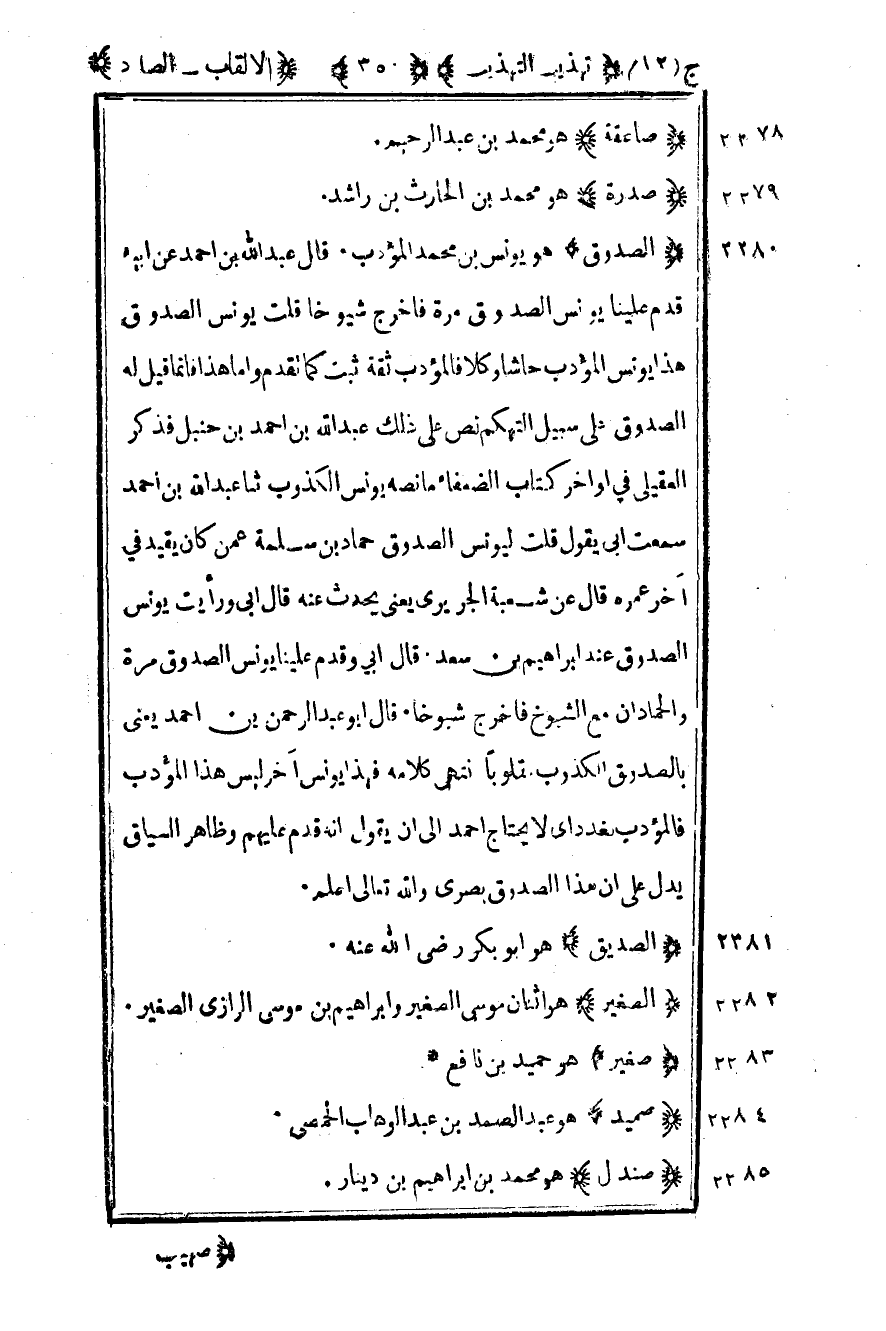 ج (١٢) ﴿ تهذيب التهذيب ﴾ ﴿ ٣٥٠ ﴾ ﴿ الالقاب ـ الصاد ﴾
٢٢٧٨ ﴿ صاعقة ﴾ هو محمد بن عبدالرحيم.
٢٢٧٩ ﴿ صدرة ﴾ هو محمد بن الحارث بن راشد.
٢٢٨٠ ﴿ الصدوق ﴾ هو يونس بن محمد المؤدب. قال عبدالله بن احمد عن ابيه
قدم علينا يونس الصدوق مرة فاخرج شيوخا قلت يونس الصدوق
هذا يونس المؤدب حاشا وكلا فالمؤدب ثقة ثبت كما تقدم واما هذا فانما قيل له
الصدوق على سبيل التهكم نص على ذلك عبدالله بن احمد بن حنبل فذكر
العقيلى في اواخر كتاب الضعفاء ما نصه يونس الكذوب ثنا عبدالله بن احمد
سمعت ابى يقول قلت ليونس الصدوق حماد بن سلمة عمن كان يقيد في
آخر عمره قال عن شعبة الجريرى يعنى يحدث عنه قال ابى ورأيت يونس
الصدوق عند ابراهيم بن سعد. قال ابي وقدم علينا يونس الصدوق مرة
والحمادان مع الشيوخ فاخرج شيوخا. قال ابو عبدالرحمن بن احمد يعنى
بالصدوق الكذوب مقلوباً نتهى كلامه فهذا يونس آخر ليس هذا المؤدب
فالمؤدب بغدداى لا يحتاج احمد الى ان يقول انه قدم عليهم وظاهر السياق
يدل على ان هذا الصدوق بصرى والله تعالى اعلم.
٢٢٨١ ﴿ الصديق ﴾ هو ابو بكر رضى الله عنه.
٢٢٨٢ ﴿ الصغير ﴾ هو اثنان موسى الصغير وابراهيم بن موسى الرازى الصغير.
٢٢٨٣ ﴿ صغير ﴾ هو حميد بن نافع *
٢٢٨٤ ﴿ صميد ﴾ هو عبدالصمد بن عبدالوهاب الحمصي.
٢٢٨٥ ﴿ صندل ﴾ هو محمد بن ابراهيم بن دينار.
﴿ صهيب